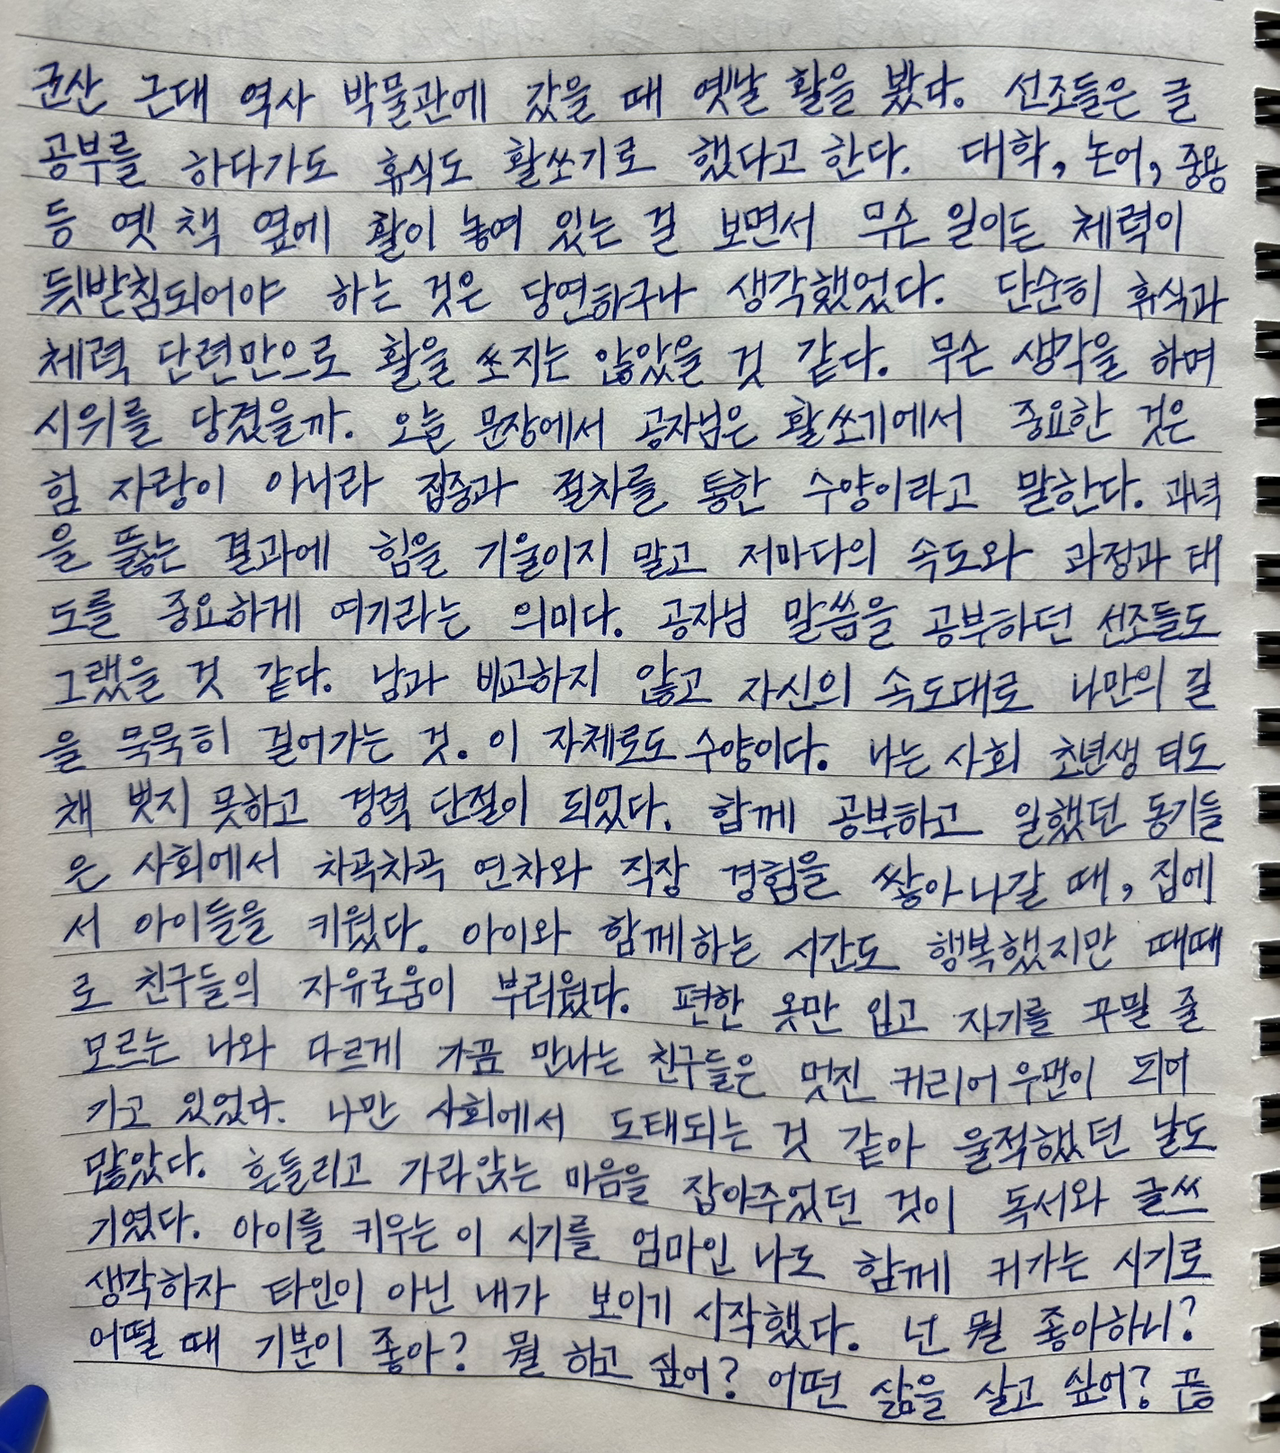 군산 근대 역사 박물관에 갔을 때 옛날 활을 봤다. 선조들은 글
공부를 하다가도 휴식도 활쏘기로 했다고 한다. 대학, 논어, 중용
등 옛 책 옆에 활이 놓여 있는 걸 보면서 무슨 일이든 체력이
뒷받침되어야 하는 것은 당연하구나 생각했었다. 단순히 휴식과
체력 단련만으로 활을 쏘지는 않았을 것 같다. 무슨 생각을 하며
시위를 당겼을까. 오늘 문장에서 공자님은 활쏘기에서 중요한 것은
힘 자랑이 아니라 집중과 절차를 통한 수양이라고 말한다. 과녁
을 뚫는 결과에 힘을 기울이지 말고 저마다의 속도와 과정과 태
도를 중요하게 여기라는 의미다. 공자님 말씀을 공부하던 선조들도
그랬을 것 같다. 남과 비교하지 않고 자신의 속도대로 나만의 길
을 묵묵히 걸어가는 것. 이 자체로도 수양이다. 나는 사회 초년생 티도
채 벗지 못하고 경력 단절이 되었다. 함께 공부하고 일했던 동기들
은 사회에서 차곡차곡 연차와 직장 경험을 쌓아 나갈 때, 집에
서 아이들을 키웠다. 아이와 함께하는 시간도 행복했지만 때때
로 친구들의 자유로움이 부러웠다. 편한 옷만 입고 자기를 꾸밀 줄
모르는 나와 다르게 가끔 만나는 친구들은 멋진 커리어 우먼이 되어
가고 있었다. 나만 사회에서 도태되는 것 같아 울적했던 날도
많았다. 흔들리고 가라앉는 마음을 잡아주었던 것이 독서와 글쓰
기였다. 아이를 키우는 이 시기를 엄마인 나도 함께 커가는 시기로
생각하자 타인이 아닌 내가 보이기 시작했다. 넌 뭘 좋아하니?
어떨 때 기분이 좋아? 뭘 하고 싶어? 어떤 삶을 살고 싶어? 끊